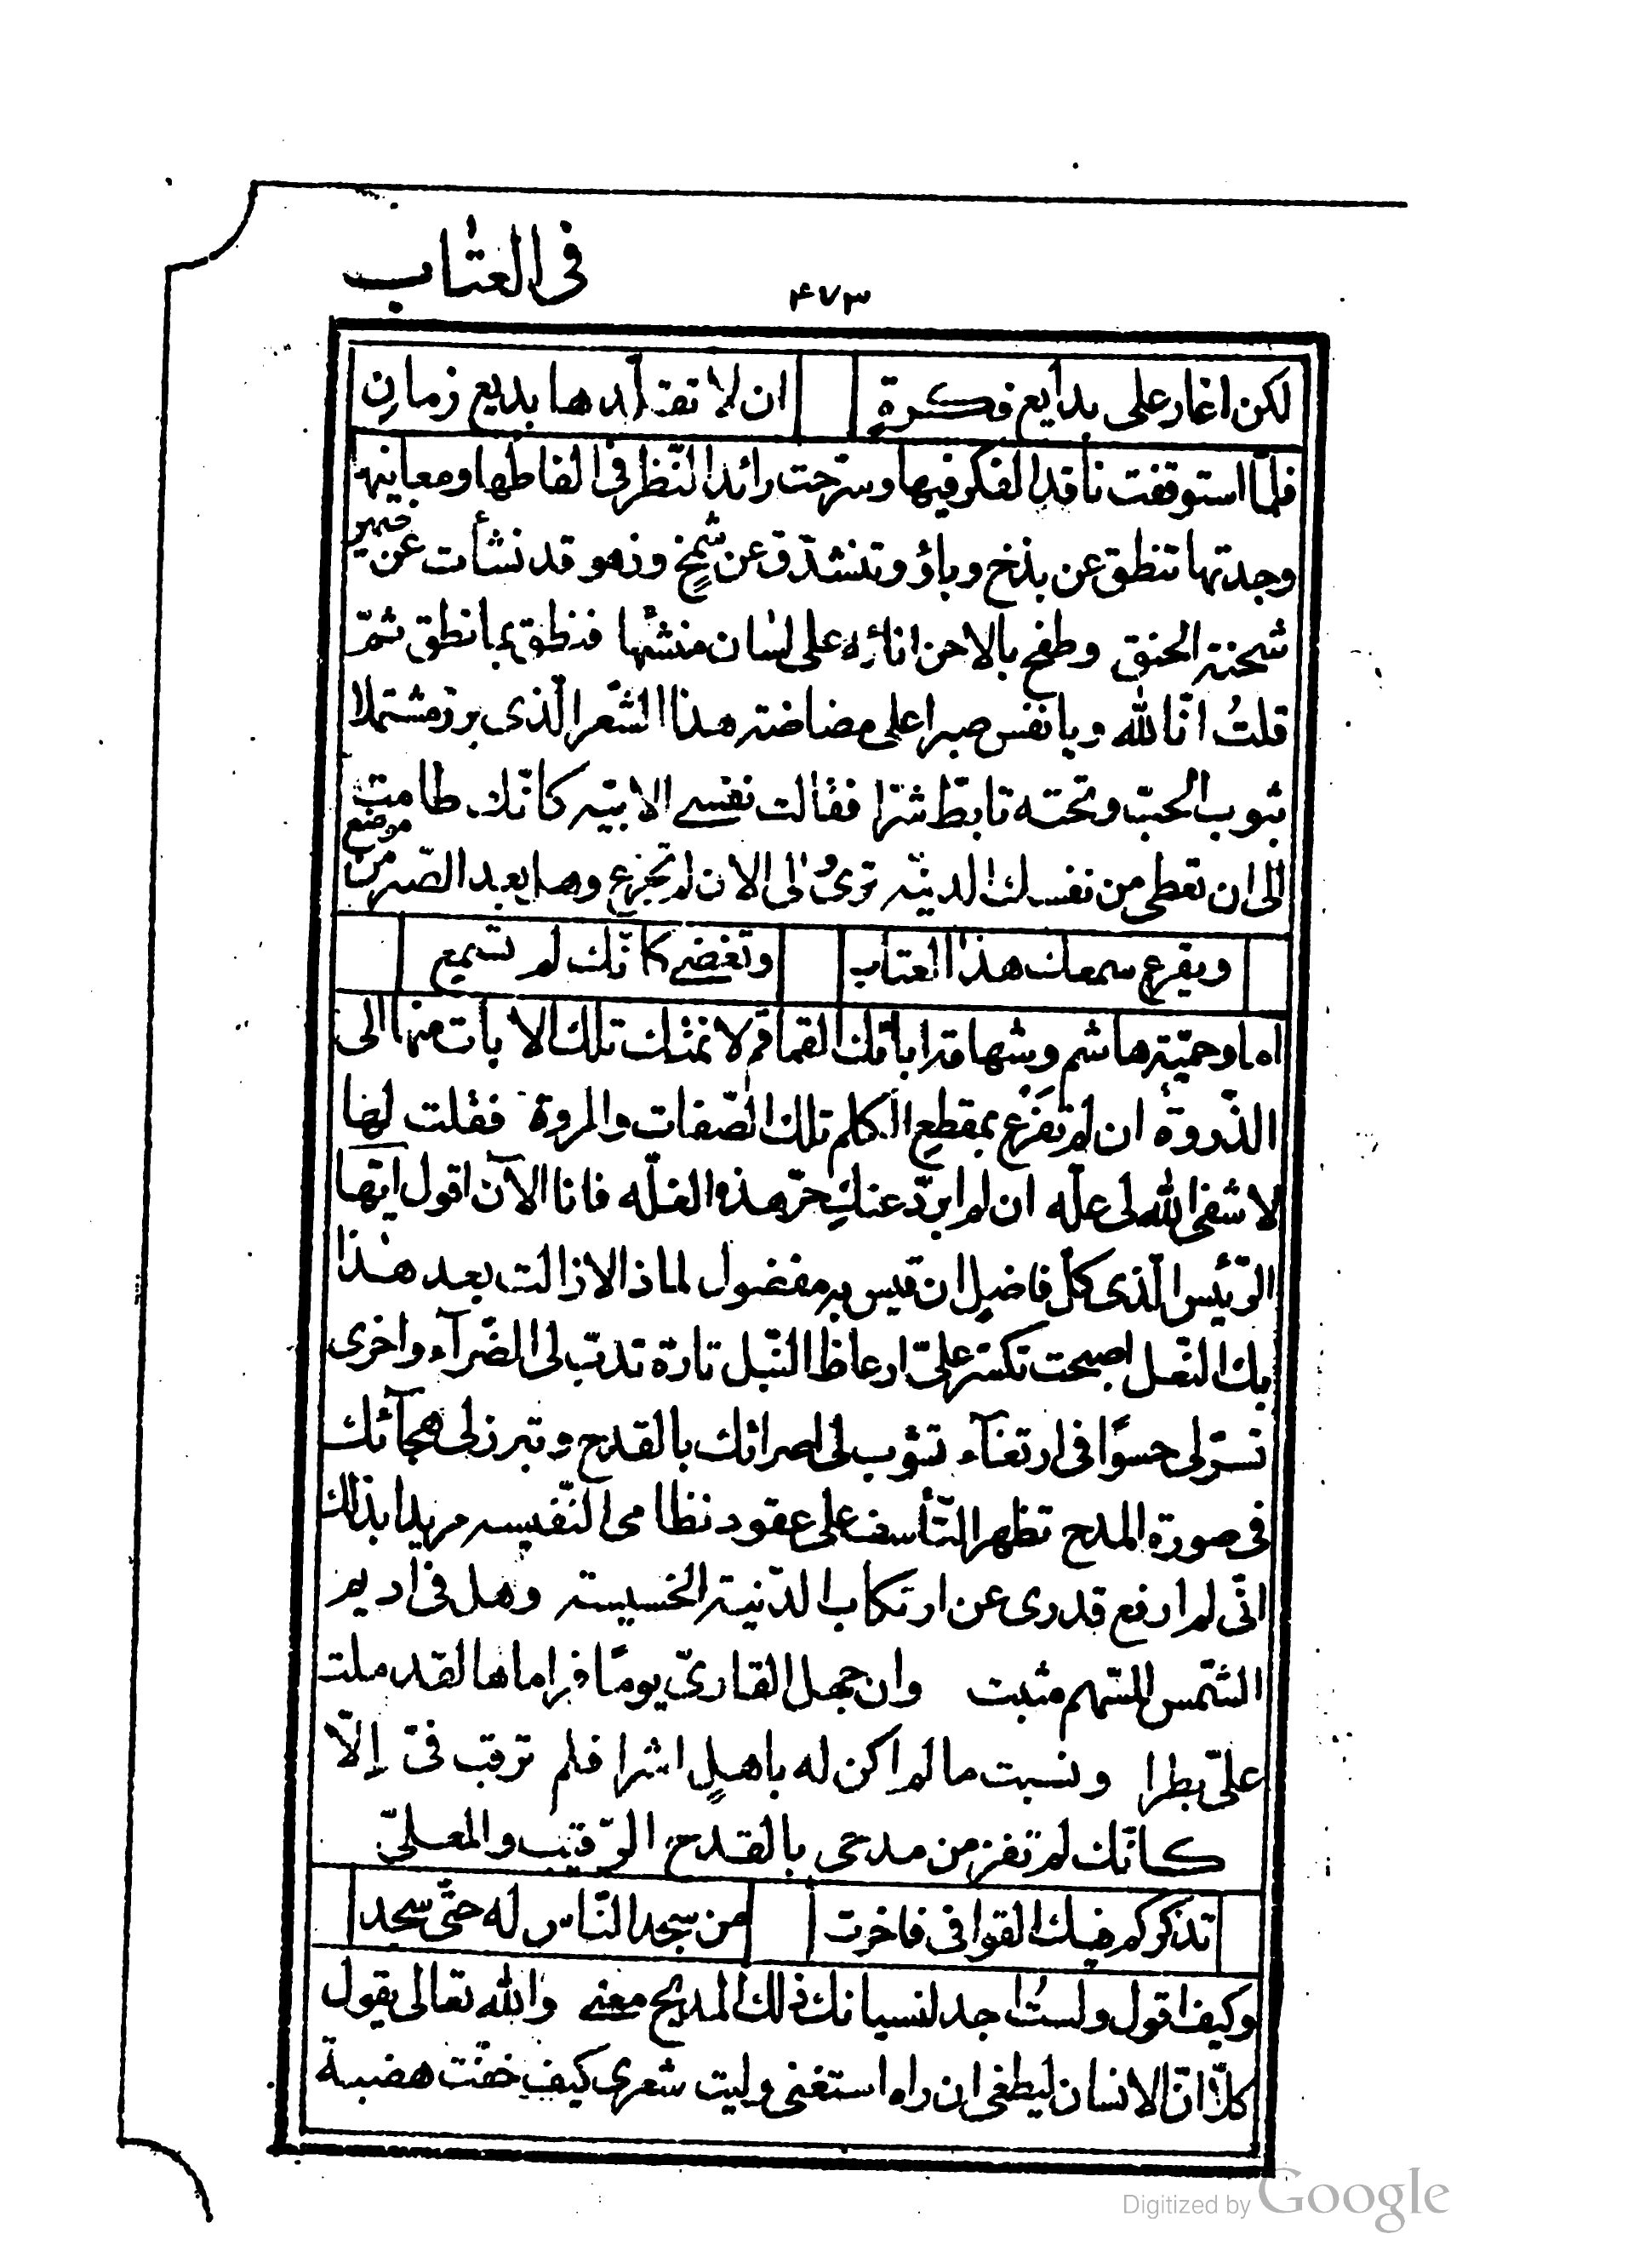 في العتاب
۴۷۳
لكن اغار على بدايع فكرة ان لا تقلدها بديع زمان
فلمّا استوقفت ناقد الفكر فيها وسرّحت رائد النّظر في الفاظها ومعانيها
وجدتها تنطق عن بذخ وباؤ وتتشدّق عن شمخ وزهو قد نشأت عن ضمير
شحنته الحنق وطفح بالاحن اناؤه على لسان منشئها فنطق بما نطق ثمّ
قلتُ انّا لله ويا نفس صبرا على مضاضة هذا الشّعر الّذى برز مشتملا
بثوب الحبّ وتحته تابّط شرّا فقالت نفسى الابيّه كانّك طامت
الى ان تعطى من نفسك الدنيّه ترىُ الى الان لم تجزع وهل بعد الصّبر من موضع
ويقرع سمعك هذا العتاب وتغضى كانّك لم تسمع
اما وحميّة هاشم وشهامة ابائك القماقم لا نمتك تلك الاباة منها الى
الذّروة ان لم تفزع بمقطع الكلم تلك الصّفات والمروة فقلت لها
لا شفى الله لى علّه ان لم ابرّد عنك حرّ هذه الغلّه فانا الآن اقول ايّها
الرّئيس الّذى كلّ فاضل ان قيس به مفضول لماذا لا زالت بعد هذا
بك النعل اصبحت تكسّر علىّ ارعاظ النّبل تارة تدبّ لى الضّرآء واخرى
تسرّ لى حسوًا فى ارتغآء تشوب لى اصرائك بالقدح وتبرز لى هجآئك
فى صورة المدح تظهر التّأسف على عقود نظامى النّفيسه مريدا بذلك
انّى لم ارفع قدرى عن ارتكاب الدّنيّة الخسيسة وهل فى اديم
الشّمس للسّهم مثبت وان جهل القارىّ يومًا فراماها لقد ملت
علىّ بطرا ونسبت ما لم اكن له باهلٍ اشرا فلم ترقب فىّ إلّا
كانّك لم تفز من مدحى بالقدح الرّقيب والمعلّىّ
تذكّر كم فيك القوافى فاخرت من سجد النّاس له حتّى سجد
وكيف اقول ولستُ اجد لنسيانك ذلك المديح معنى والله تعالى يقول
كلّا انّ الانسان ليطغى ان راه استغنى وليت شعرى كيف خفّت هضبة
Digitized by Google